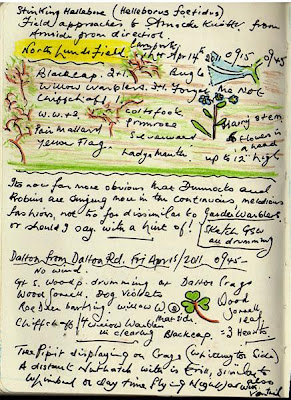 Stinking Hellebore (Helleborus foetidus)
Field approaches to Arnside Knott from
Arnside prom direction.
North Lunds Field April 14th 2011 0915 - 0945
Blackcap. 2+1. Bugle
Willow Warblers. 3+1. Forget Me Not
Chiffchaff 1
W.W. + 2 Coltsfoot Hairy stem
Pair Mallard Primrose flower in
Silverweed a head
Yellow Flag. Lady's Mantle. up to 12" high
It's now far more obvious that Dunnocks and
Robins are singing more in the continuous, melodious
fashion, not too far dissimilar to Garden Warblers,
or should I say, with a hint of!
GSW
drumming
Dalton from Dalton Rd. Fri April 15/2011 0945-
No wind.
Gt. S. Woodp. drumming on Dalton Crags
Wood Sorrell. Dog Violets
Roe Deer barking. Willow W Wood
Sorrell
leaf.
Chiffchaff 1 Willow Warbler = 3 Hearts
in clearing Blackcap
Tree Pipit displaying on Crags
A distant Nuthatch with its trill, similar to
Whimbrel or day time flying Nightjar